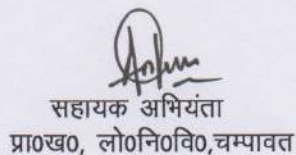 सहायक अभियंता
प्रा०ख०, लो०नि०वि०,चम्पावत